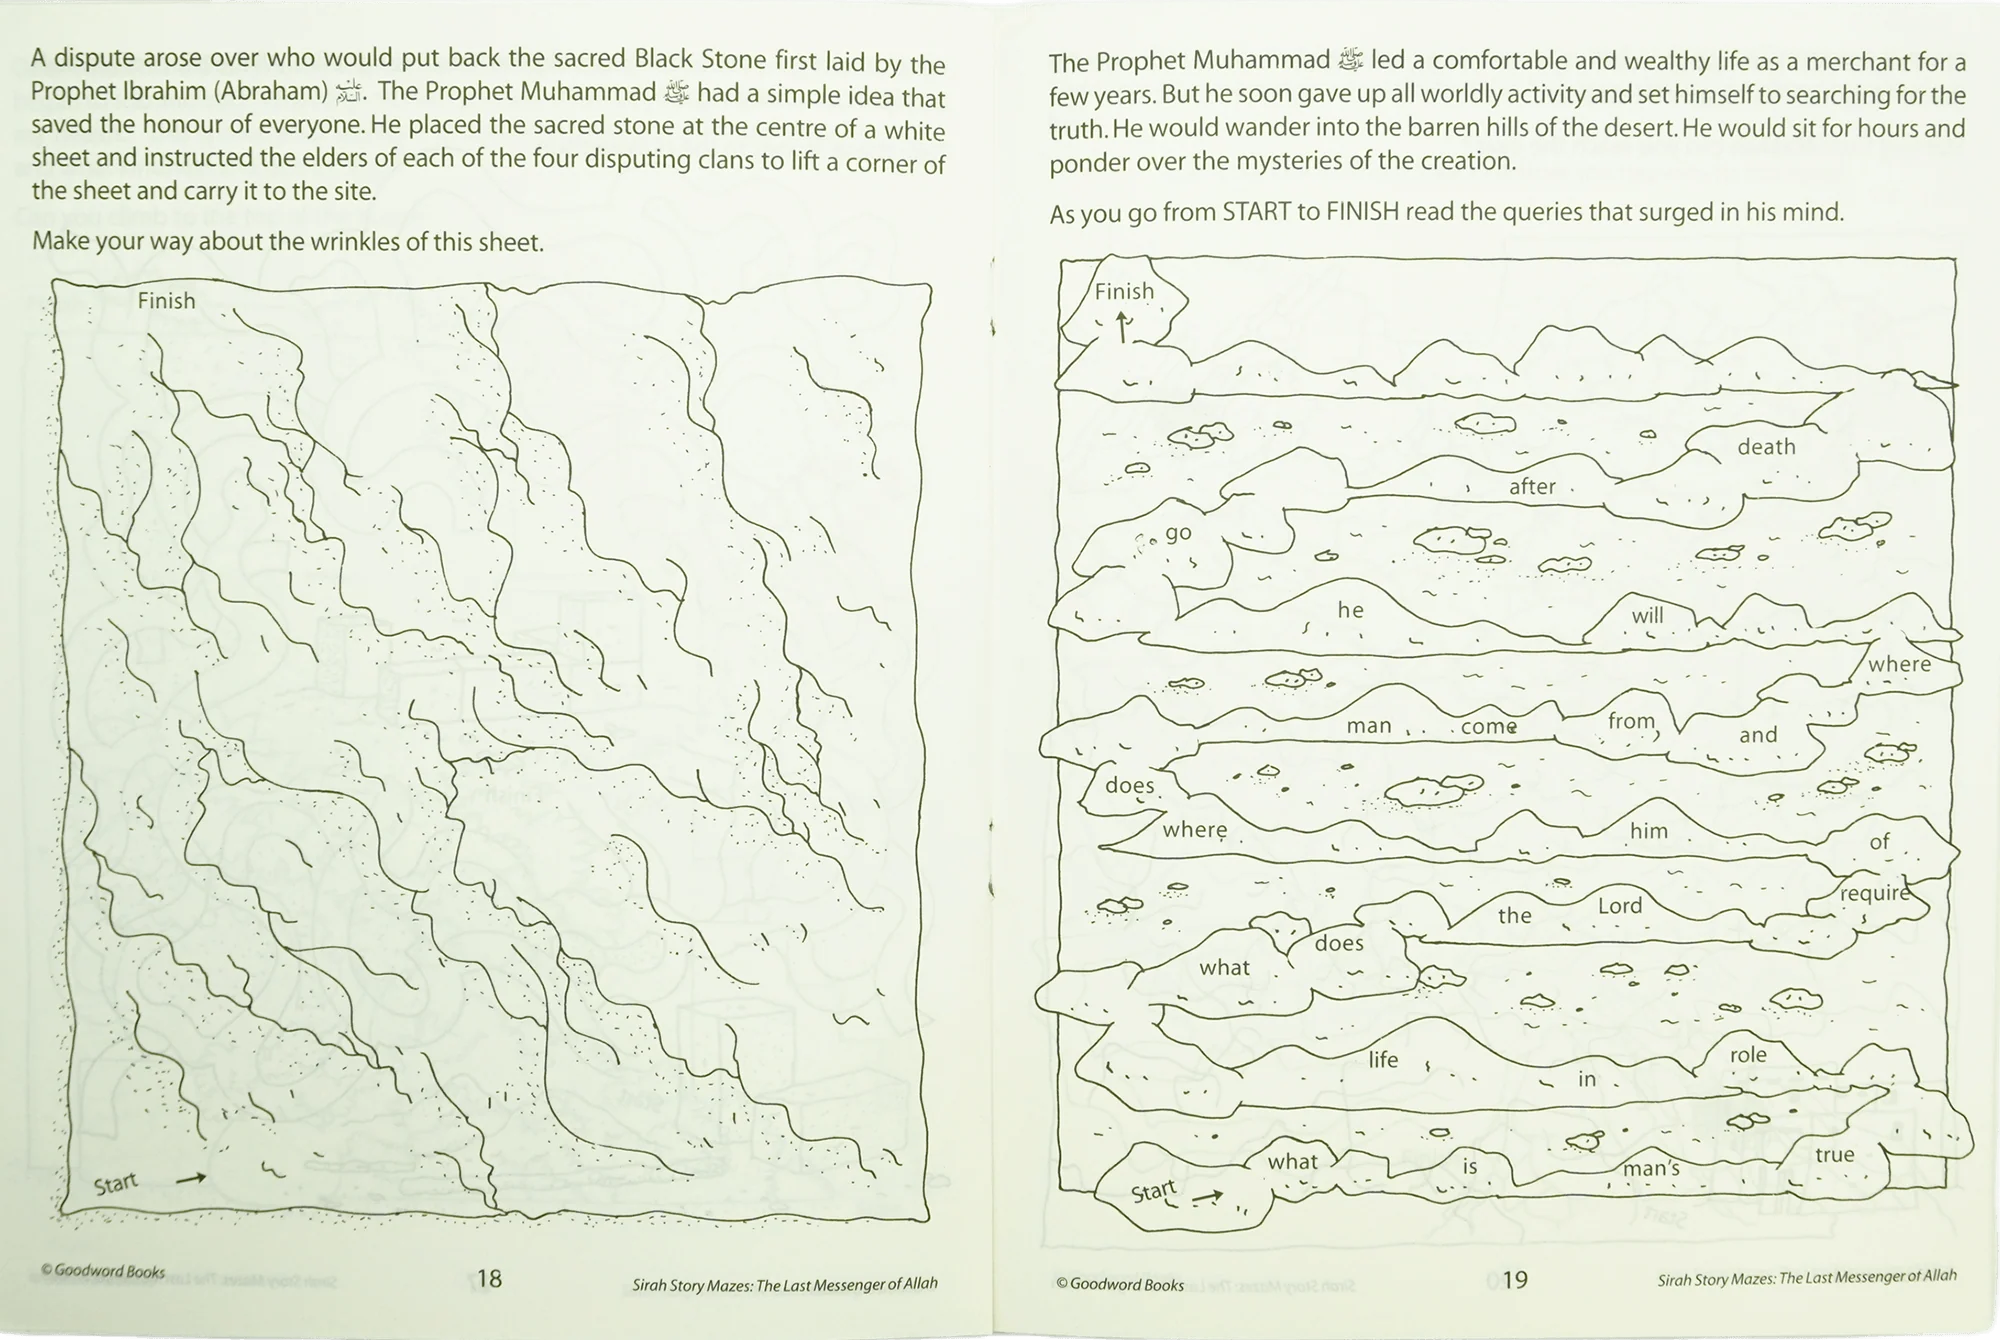 A dispute arose over who would put back the sacred Black Stone first laid by the
Prophet Ibrahim (Abraham) عليه السلام. The Prophet Muhammad ﷺ had a simple idea that
saved the honour of everyone. He placed the sacred stone at the centre of a white
sheet and instructed the elders of each of the four disputing clans to lift a corner of
the sheet and carry it to the site.
Make your way about the wrinkles of this sheet.
Finish
Start
© Goodword Books
18
Sirah Story Mazes: The Last Messenger of Allah
The Prophet Muhammad ﷺ led a comfortable and wealthy life as a merchant for a
few years. But he soon gave up all worldly activity and set himself to searching for the
truth. He would wander into the barren hills of the desert. He would sit for hours and
ponder over the mysteries of the creation.
As you go from START to FINISH read the queries that surged in his mind.
Finish
death
after
go
he will
where
man come from, and
does
where him of
require
the Lord
does
what
life in role
what is man's true
Start
© Goodword Books
19
Sirah Story Mazes: The Last Messenger of Allah